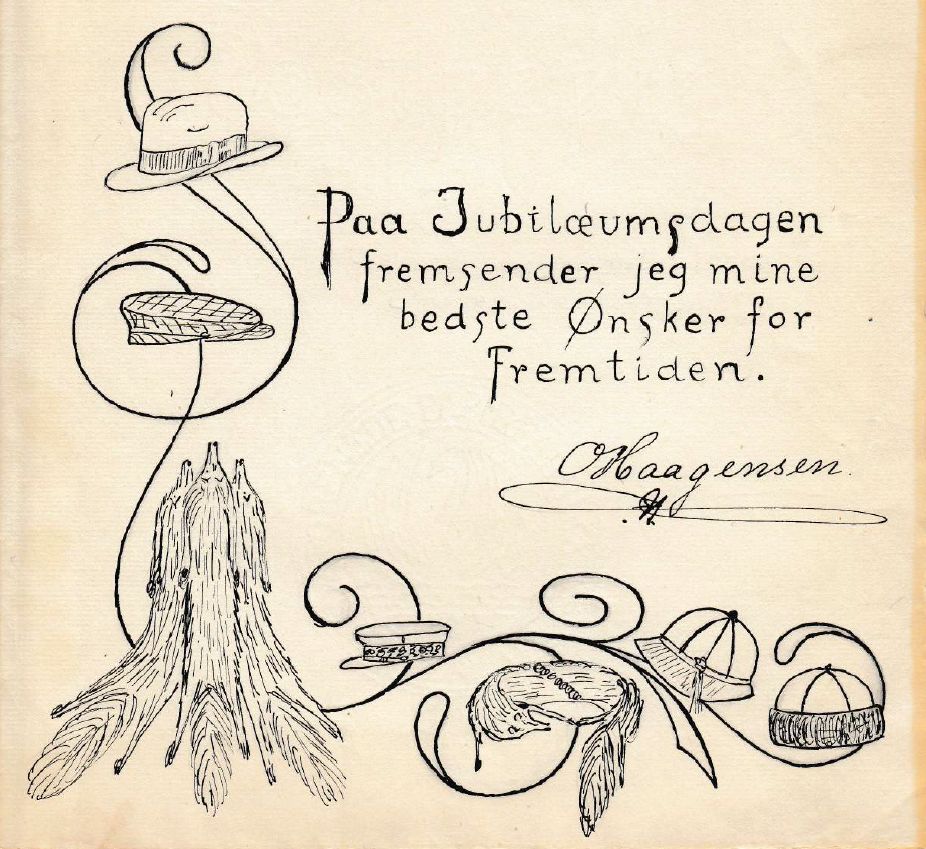 Paa Jubilæumsdagen
fremsender jeg mine
bedste Ønsker for
Fremtiden.
O Haagensen.